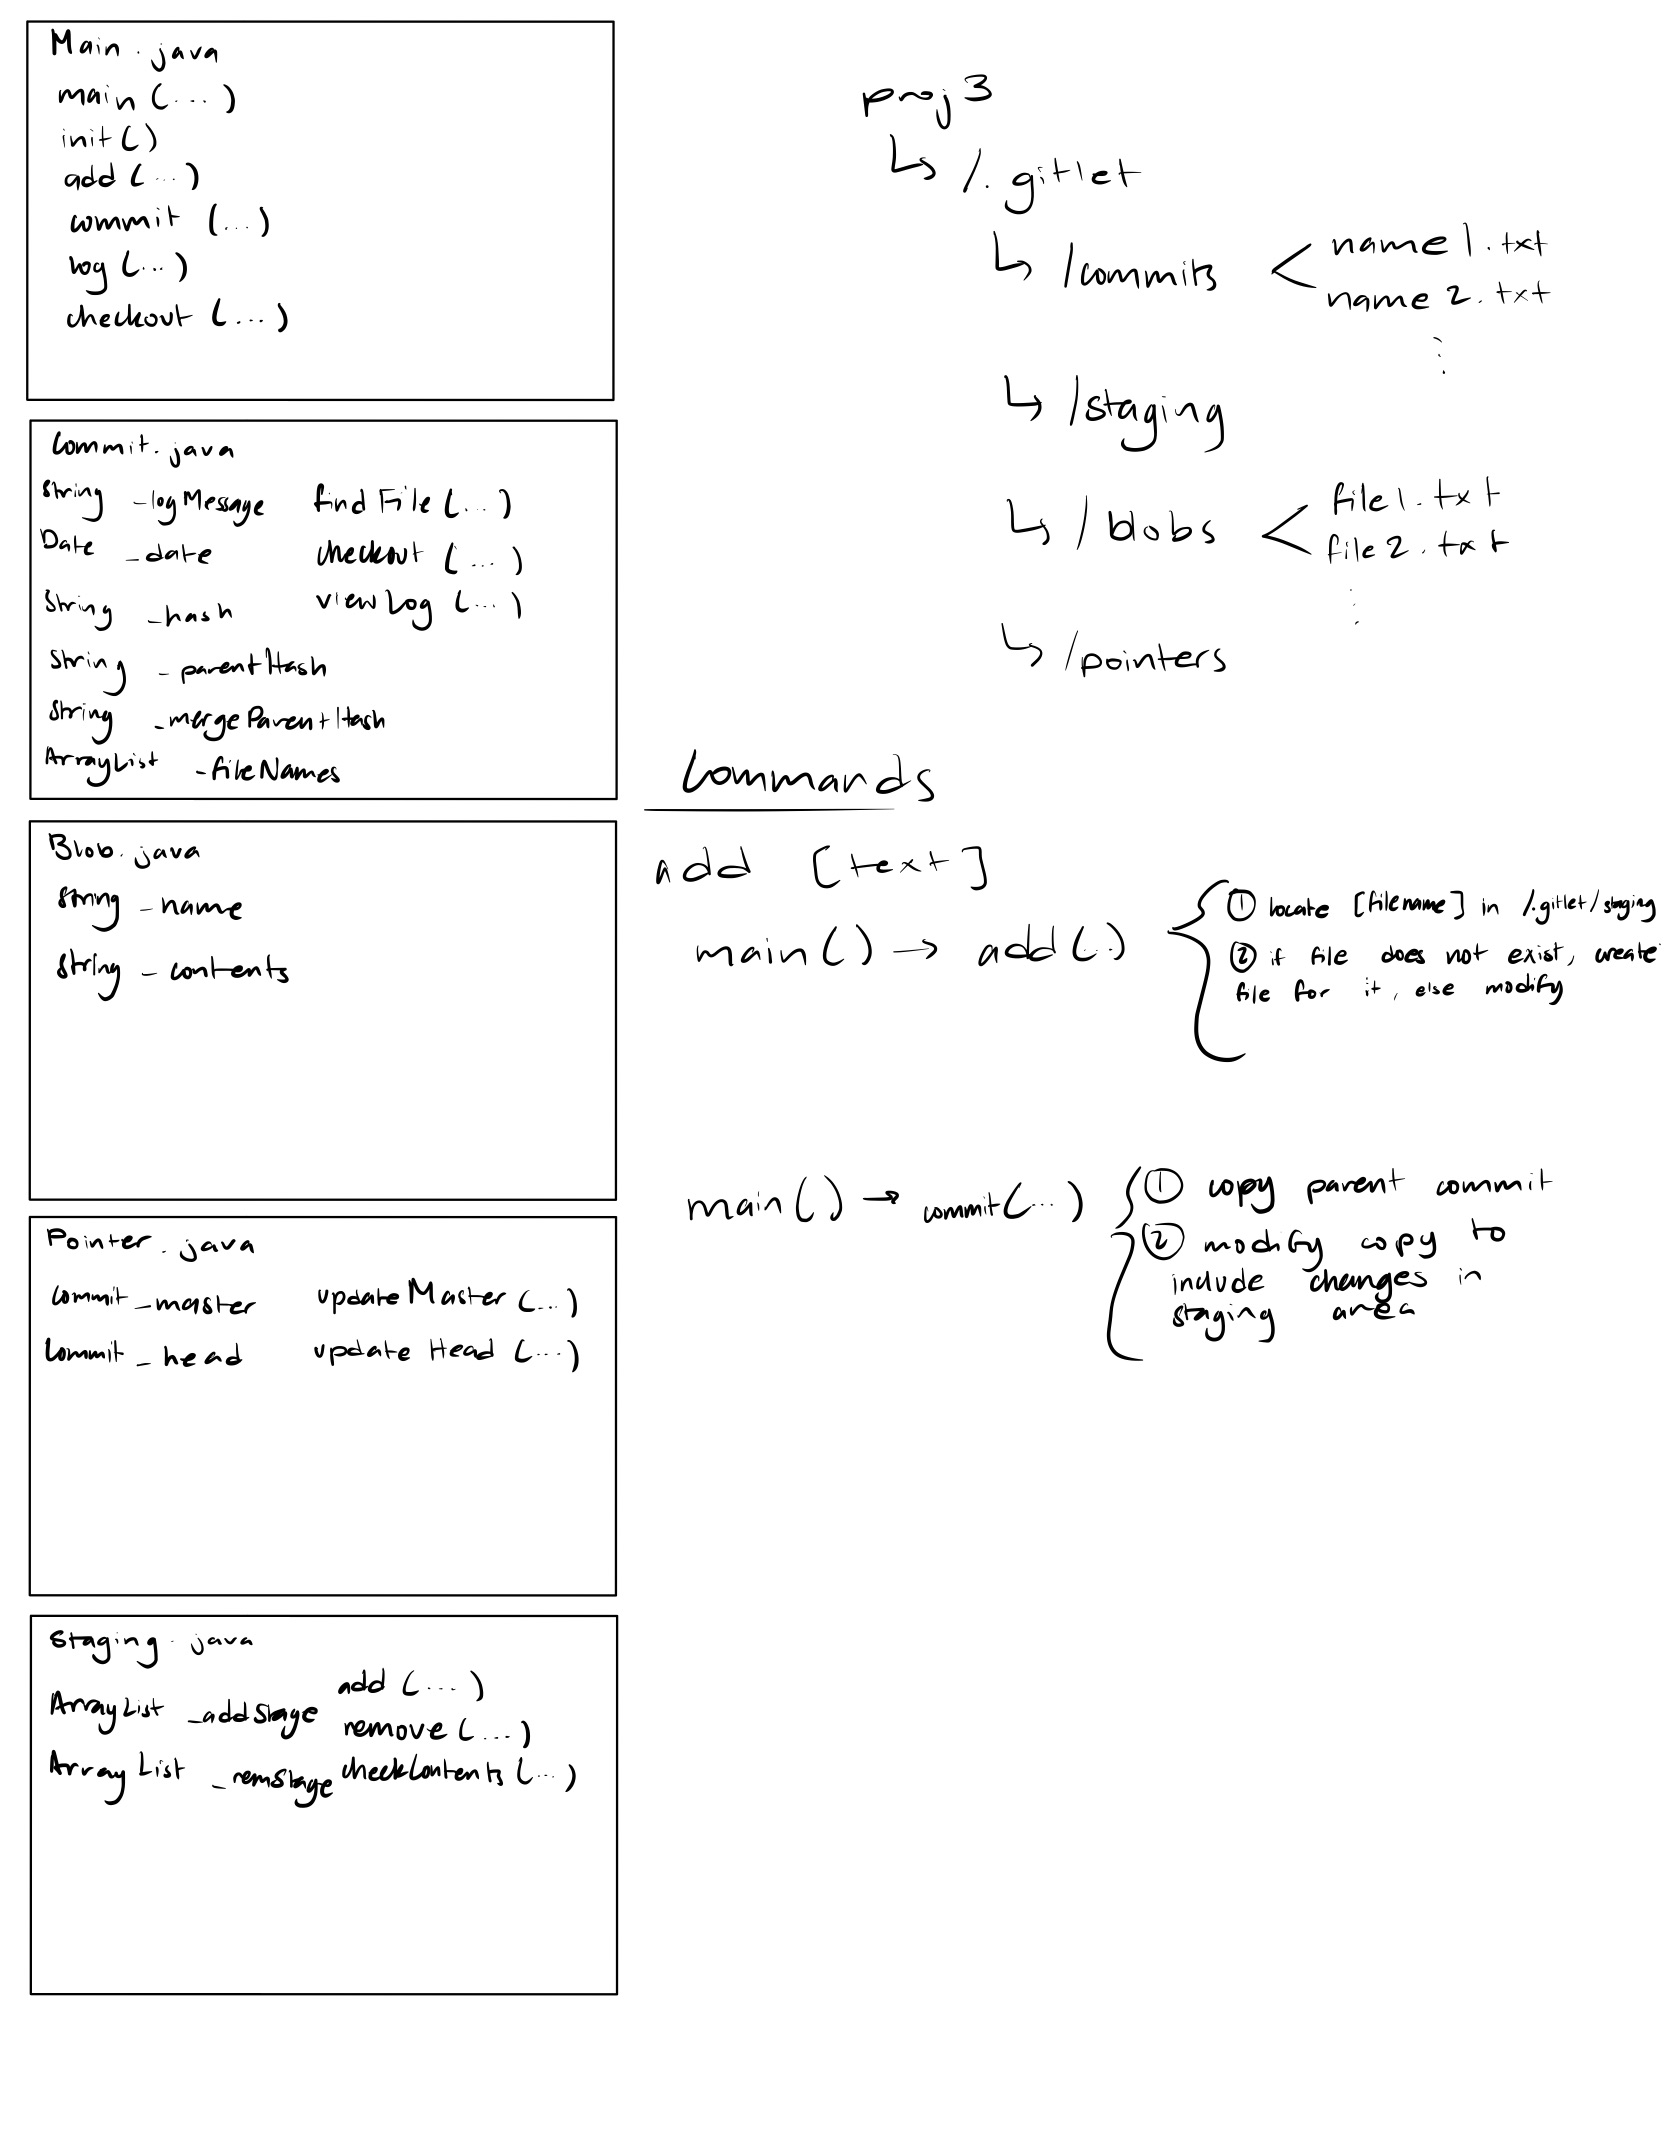 Main.java
main (...)
init()
add (...)
commit (...)
log (...)
checkout (...)
Commit.java
String _logMessage findFile (...)
Date _date checkout (...)
String _hash viewLog (...)
String _parentHash
String _mergeParentHash
ArrayList _fileNames
Blob.java
String _name
String _contents
Pointer.java
Commit _master updateMaster (...)
Commit _head updateHead (...)
Staging.java
ArrayList _addStage add (...)
remove (...)
ArrayList _remStage checkContents (...)
proj3
↳ /.gitlet
↳ /commits < name1.txt
name2.txt
⋮
↳ /staging
↳ /blobs < file1.txt
file2.txt
⋮
↳ /pointers
Commands
add [text]
main() → add(..)
① locate [filename] in /.gitlet/staging
② if file does not exist, create
file for it, else modify
main() → commit(...)
① copy parent commit
② modify copy to
include changes in
staging area